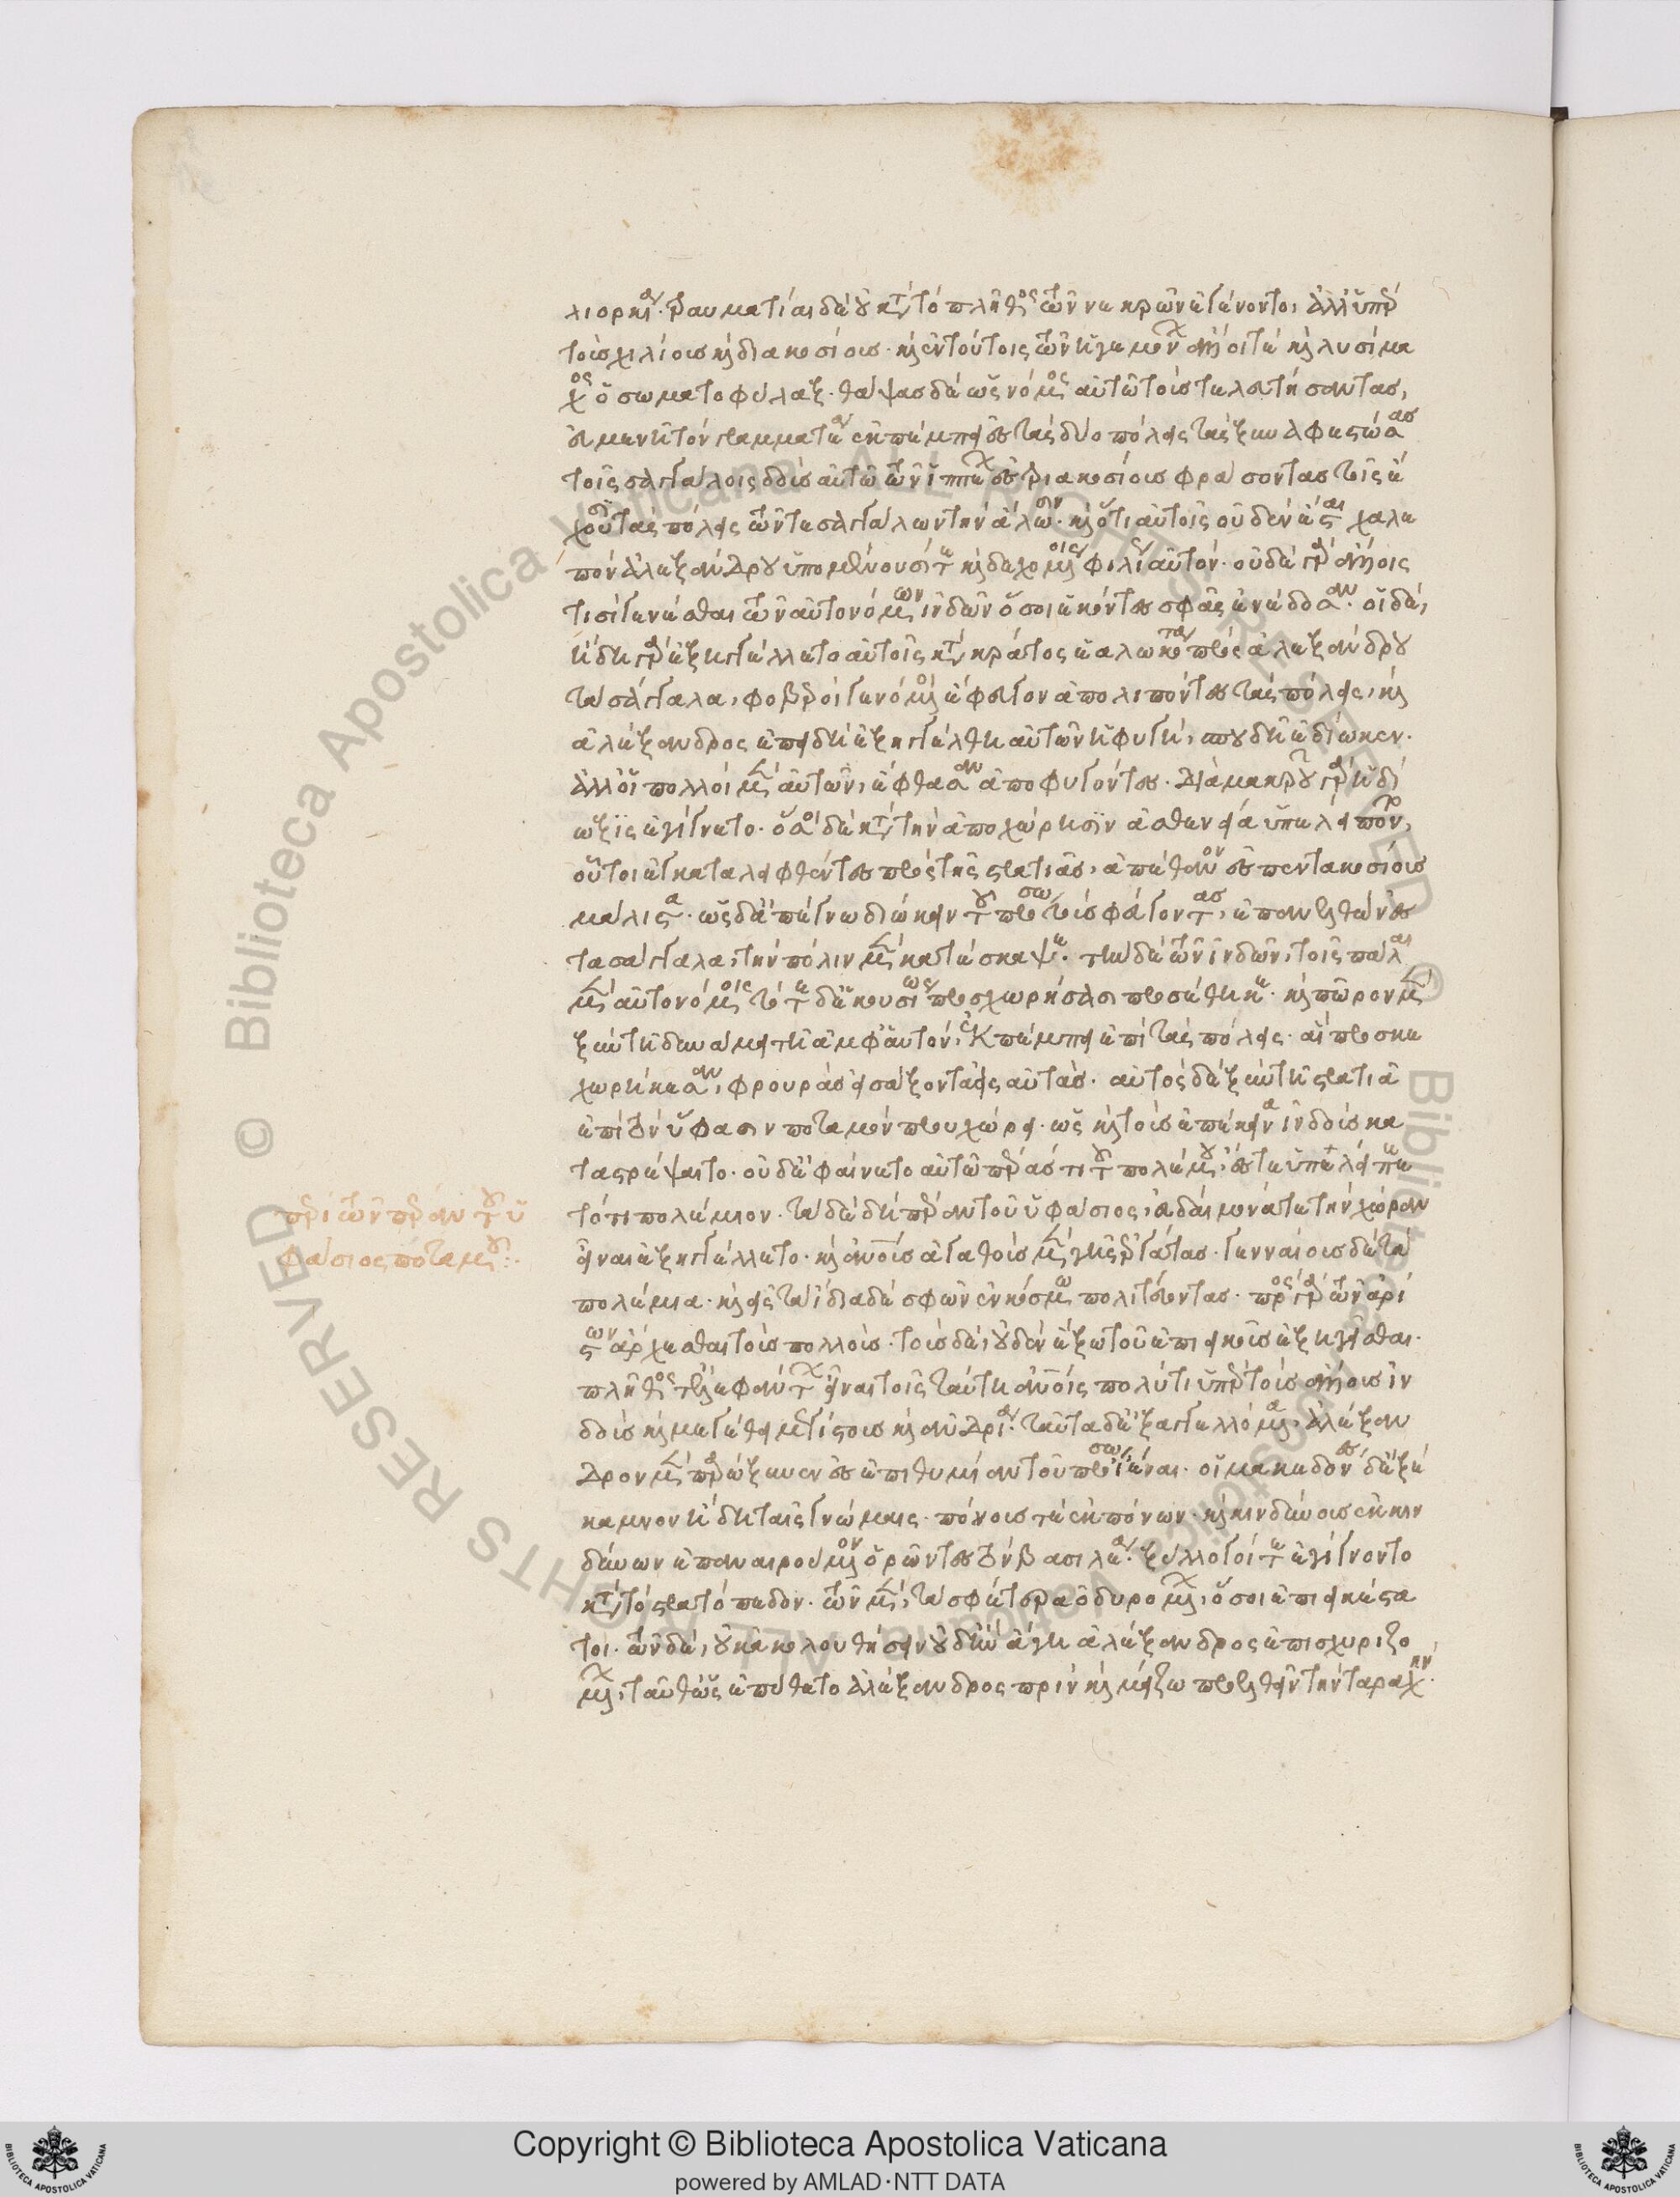 λιορκίαν. τραυματίαι δὲ οὐ κατὰ τὸ πλῆθος τῶν νεκρῶν ἐγένοντο, ἀλλ' ὑπὲρ
τοὺς χιλίους καὶ διακοσίους. καὶ ἐν τούτοις τῶν ἡγεμόνων ἄλλοι τε καὶ λυσίμα
χος ὁ σωματοφύλαξ. θάψας δὲ ὡς νόμος αὐτῶ τοὺς τελευτήσαντας,
εὐμενῆ τὸν γραμματέαν ἐκπέμπει ἐς τὰς δύο πόλεις τὰς ξυναφεστώσας
τοῖς σαγγάλοις δοὺς αὐτῶ τῶν ἱππέων ἐς τριακοσίους φράσοντας τοῖς ἔ
χουσι τὰς πόλεις τῶν τε σαγγάλων τὴν ἅλωσιν. καὶ ὅτι αὐτοῖς οὐδὲν ἔσται χαλε
πὸν ἀλεξάνδρου ὑπομένουσί τε καὶ δεχομένοις φιλίως αὐτόν. οὐδὲ γὰρ ἄλλοις
τισὶ γενέσθαι τῶν αὐτονόμων ἰνδῶν ὅσοι ἑκόντες σφᾶς ἐνέδοσαν. οἱ δὲ,
ἤδη γὰρ ἐξηγγέλλετο αὐτοῖς κατὰ κράτος ἑαλωκότα πρὸς ἀλεξάνδρου
τὰ σάγγαλα, φοβεροὶ γενόμενοι ἔφευγον ἀπολιπόντες τὰς πόλεις, καὶ
ἀλέξανδρος ἐπειδὴ ἐξηγγέλθη αὐτῶν ἡ φυγὴ, σπουδῆ ἐδίωκεν.
ἀλλ' οἱ πολλοὶ μὲν αὐτῶν, ἔφθασαν ἀποφυγόντες. διὰ μακροῦ γὰρ ἡ δί
ωξις ἐγίγνετο. ὅσοι δὲ κατὰ τὴν ἀποχώρησιν ἀσθενεία ὑπελείποντο,
οὗτοι ἐγκαταλειφθέντες πρὸς τῆς στρατιᾶς, ἀπέθανον ἐς πεντακοσίους
μάλιστα. ὡς δὲ ἀπέγνω διώκειν τοῦ πρόσω τοὺς φεύγοντας, ἐπανελθὼν ἐς
τὰ σάγγαλα, τὴν πόλιν μὲν κατέσκαψε. τὴν δὲ τῶν ἰνδῶν, τοῖς πάλαι
μὲν αὐτονόμοις τότε δὲ ἑκουσίως προσχωρήσασι προσέθηκε. καὶ πῶρον μὲν
ξὺν τῆ δυνάμει τῆ ἀμφ' αὑτὸν, ἐκπέμπει ἐπὶ τὰς πόλεις. αἳ προσκε
χωρήκεσαν, φρουρὰς εἰσάξοντα εἰς αὐτάς. αὐτὸς δὲ ξὺν τῆ στρατιᾶ
ἐπὶ τὸν ὕφασιν ποταμὸν προυχώρει. ὡς καὶ τοὺς ἐπέκεινα ἰνδοὺς κα
ταστρέψαιτο. οὐδὲ ἐφαίνετο αὐτῶ πέρας τι τοῦ πολέμου, ἔστε ὑπελείπε
τό τι πολέμιον. τὰ δὲ δὴ πέραν τοῦ ὑφάσιος, εὐδαίμονά τε τὴν χώραν
εἶναι ἐξηγγέλλετο. καὶ ἀνθρώπους ἀγαθοὺς μὲν γῆς ἐργάτας. γενναίους δὲ τὰ
πολέμια. καὶ ἐς τὰ ἴδια δὲ σφῶν ἐν κόσμω πολιτεύοντας. πρὸς γὰρ τῶν ἀρί
στων ἄρχεσθαι τοὺς πολλούς. τοὺς δὲ, οὐδὲν ἔξω τοῦ ἐπιεικοῦς ἐξηγεῖσθαι.
πλῆθός τε ἐλεφάντων εἶναι τοῖς ταύτη ἀνθρώποις πολύ τι ὑπὲρ τοὺς ἄλλους ἰν
δοὺς καὶ μεγέθει μεγίστους καὶ ἀνδρία. ταῦτα δὲ ἐξαγγελλόμενα, ἀλέξαν
δρον μὲν παρώξυνεν ἐς ἐπιθυμίαν τοῦ πρόσω ἰέναι. οἱ μακεδόνες δὲ ἐξέ
καμνον ἤδη ταῖς γνώμαις. πόνους τε ἐκ πόνων. καὶ κινδύνους ἐκ κιν
δύνων ἐπαναιρούμενον ὁρῶντες τὸν βασιλέα. ξύλλογοί τε ἐγίγνοντο
κατὰ τὸ στρατόπεδον. τῶν μὲν, τὰ σφέτερα ὀδυρομένων, ὅσοι ἐπιεικέστα
τοι. τῶν δὲ, οὐκ ἀκολουθήσειν οὐδ' ἢν ἄγη ἀλέξανδρος ἐπισχυριζο
μένων, ταῦθ' ὡς ἐπύθετο ἀλέξανδρος πρὶν καὶ μείζω προελθεῖν τὴν ταραχὴν.
περὶ τῶν πέραν τοῦ ὑ
φάσιος ποταμοῦ:.
Copyright © Biblioteca Apostolica Vaticana
powered by AMLAD·NTT DATA